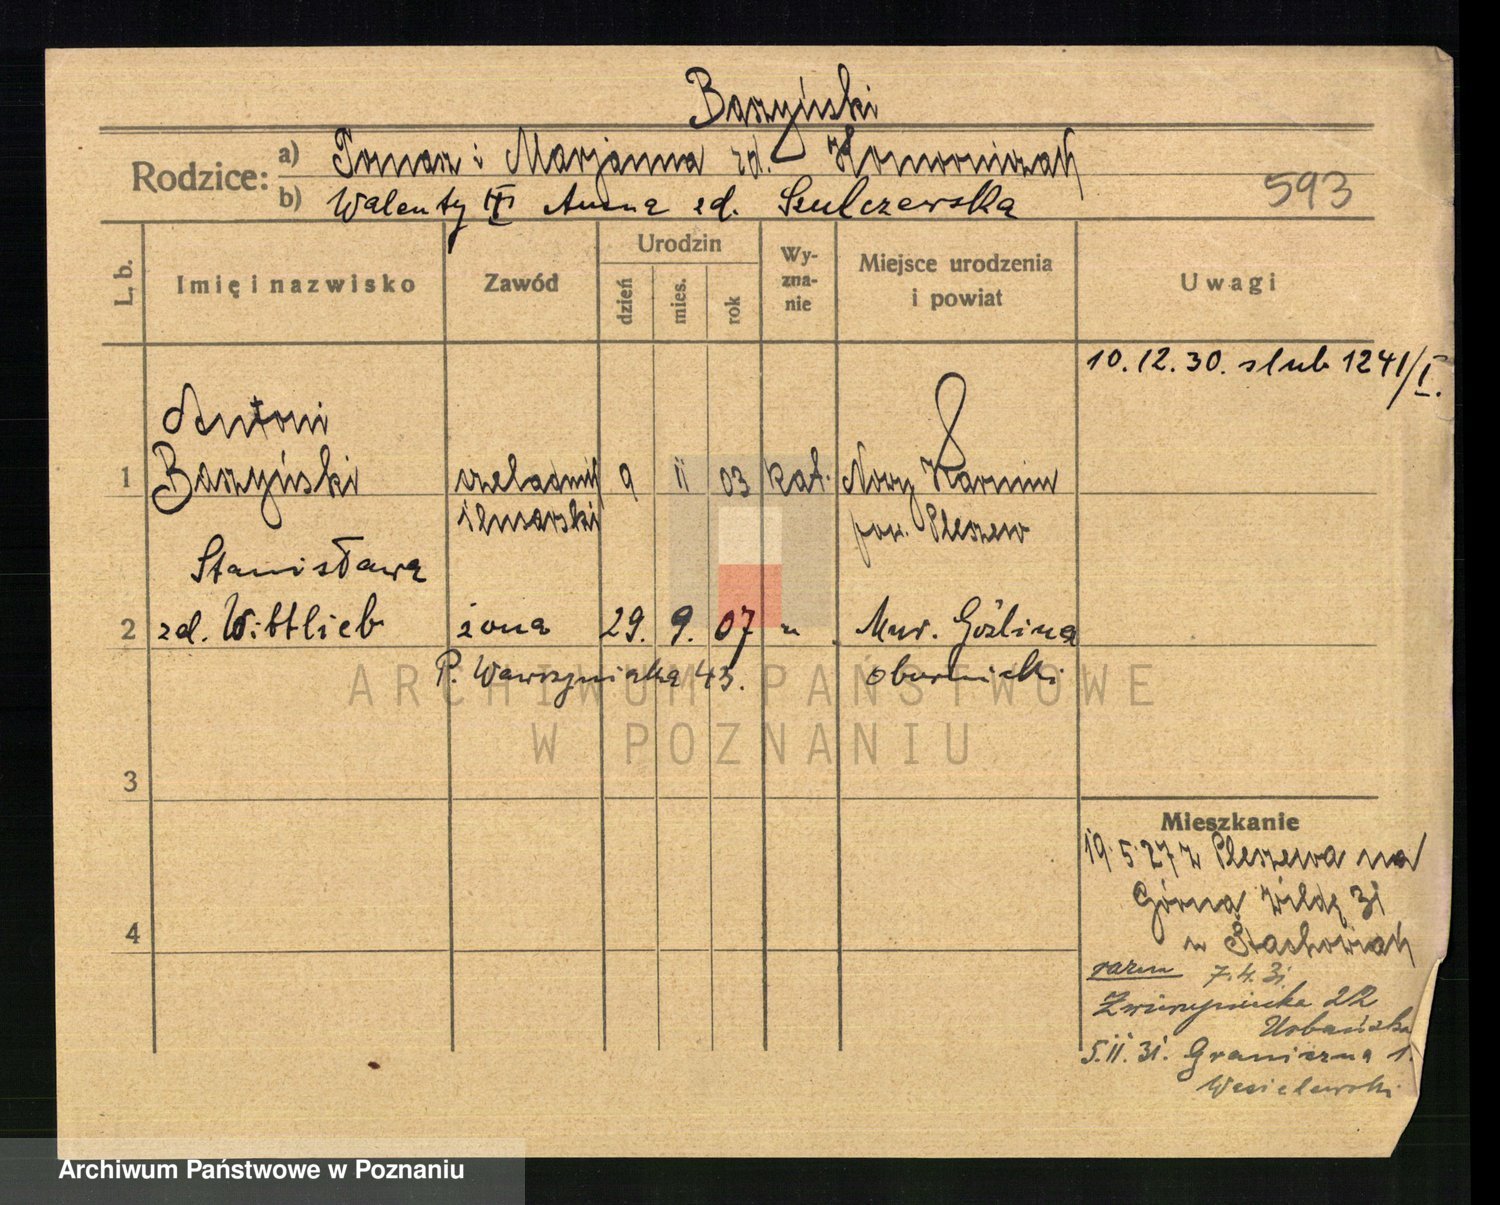 Baszyński
Rodzice: a) Tomasz i Marjanna zd. Komorniczak
b) Walenty i Anna zd. Szulczewska
593
L. b.
Imię i nazwisko
Zawód
Urodzin
dzień
mies.
rok
Wy-
zna-
nie
Miejsce urodzenia
i powiat
Uwagi
10.12.30. slub 1241/I.
Antoni
1 Baszyński czeladnik 9 11 03 kat. Nowy Karmin
pow. Pleszew
Stanisława
2 zd. Wittlieb żona 29. 9. 07 " Mur. Goślina
P. Wawrzyniaka 43. obornicki
3
4
Mieszkanie
19.5.27 z Pleszewa na
Górna Wildę 31
u Stachowiak
razem 7.4.31.
Zwierzyniecka 22
Urbańska
5.11.31. Graniczna 1.
Wesielewski
ARCHIWUM PAŃSTWOWE
W POZNANIU
Archiwum Państwowe w Poznaniu